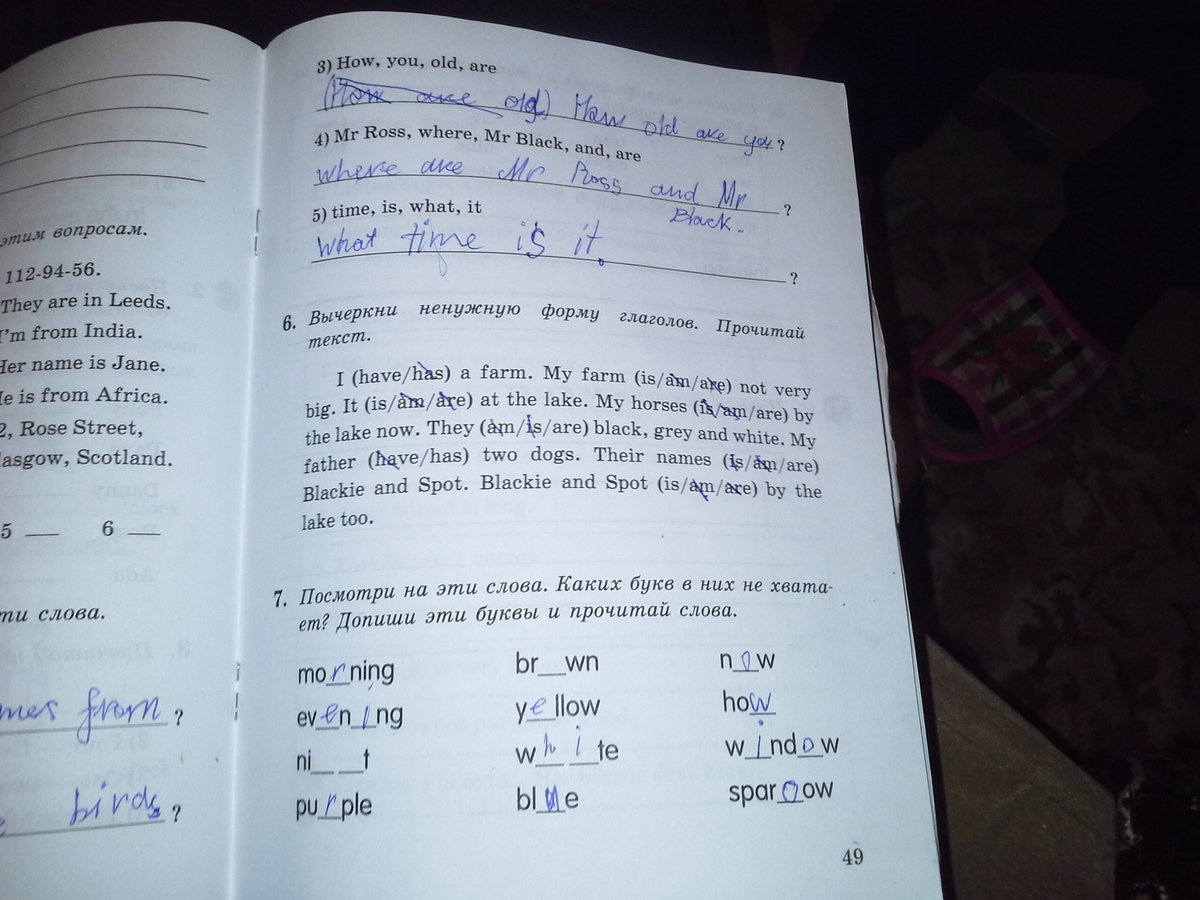 этим вопросам.
112-94-56.
They are in Leeds.
I'm from India.
Her name is Jane.
He is from Africa.
2, Rose Street,
lasgow, Scotland.
5 __ 6 __
ти слова.
mes from ?
birds ?
3) How, you, old, are
(How are old) How old are you ?
4) Mr Ross, where, Mr Black, and, are
where are Mr Ross and Mr ?
Black.
5) time, is, what, it
what time is it. ?
6. Вычеркни ненужную форму глаголов. Прочитай
текст.
I (have/has) a farm. My farm (is/am/are) not very
big. It (is/am/are) at the lake. My horses (is/am/are) by
the lake now. They (am/is/are) black, grey and white. My
father (have/has) two dogs. Their names (is/am/are)
Blackie and Spot. Blackie and Spot (is/am/are) by the
lake too.
7. Посмотри на эти слова. Каких букв в них не хвата-
ет? Допиши эти буквы и прочитай слова.
morning br__wn now
evening yellow how
ni__ __t white window
purple blue sparoow
49